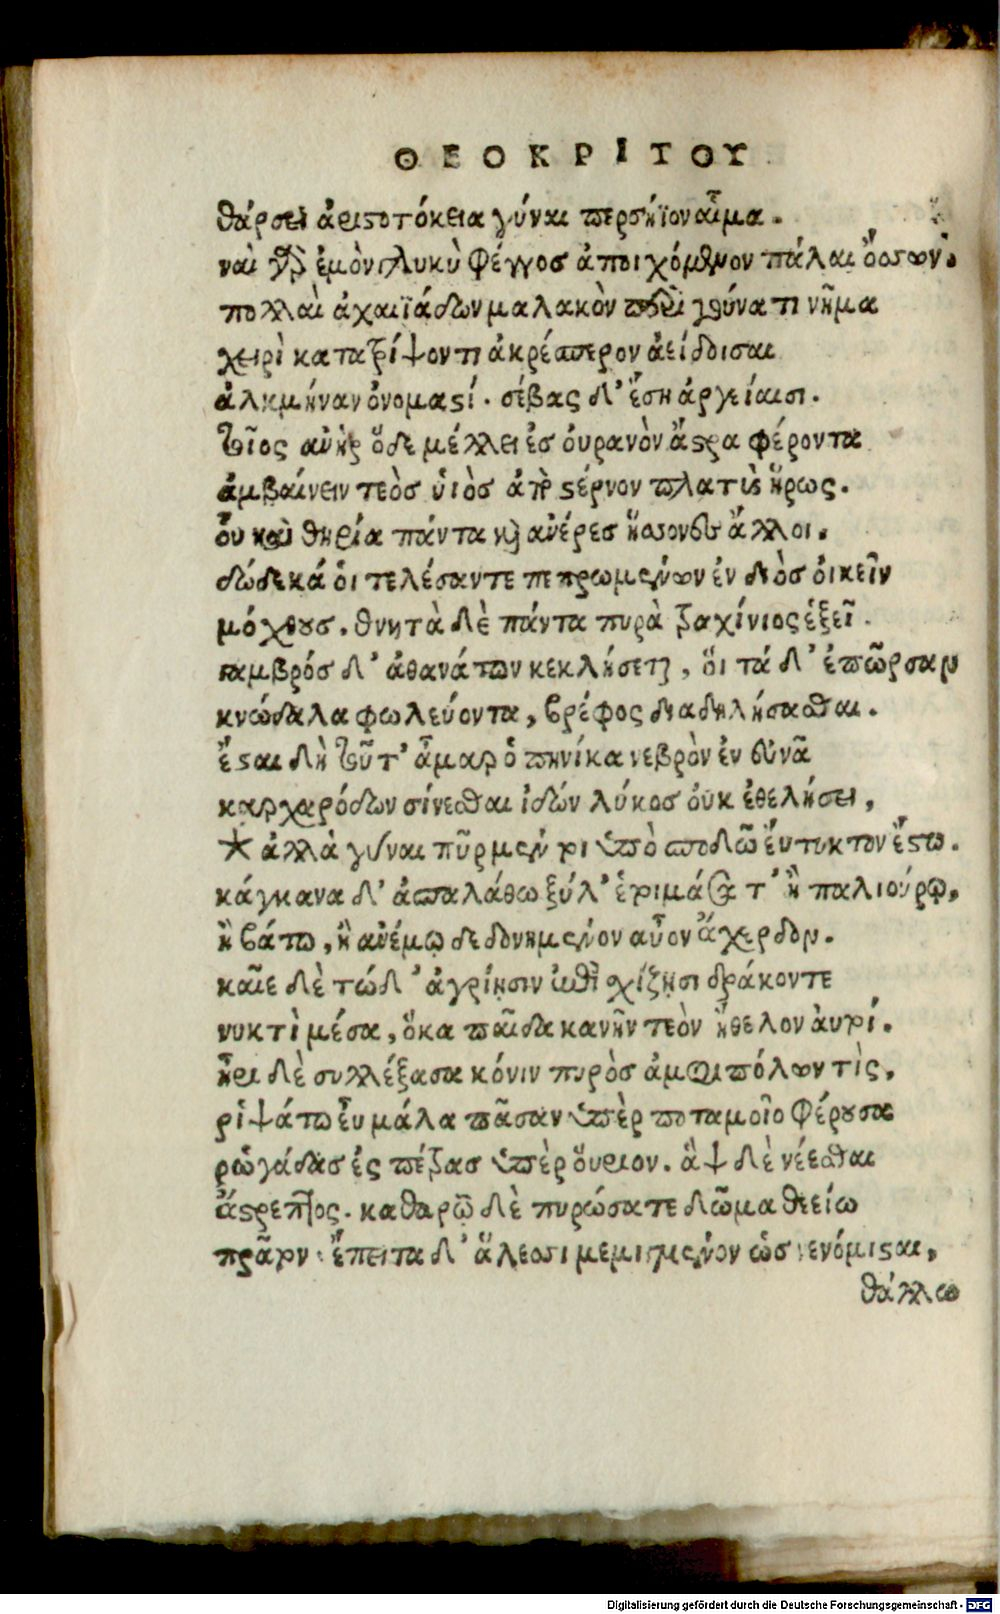 ΘΕΟΚΡΙΤΟΥ
θάρσει ἀριστοτόκεια γύναι περσήϊον αἷμα.
ναὶ γὰρ ἐμὸν γλυκὺ φέγγος ἀποιχόμενον πάλαι ὄσσων.
πολλαὶ ἀχαιϊάδων μαλακὸν ποτὶ γούνατι νῆμα
χειρὶ κατατρίψοντι ἀκρέσπερον ἀείδοισαι
ἀλκμήναν ὀνομαστί. σέβας δ' ἔσῃ ἀργείαισι.
τοῖος ἀνὴρ ὅδε μέλλει ἐς οὐρανὸν ἄστρα φέροντα
ἀμβαίνειν τεὸς ὑιὸς ἀπὸ στέρνον πλατὺς ἥρως.
οὗ καὶ θηρία πάντα καὶ ἀνέρες ἥσσονες ἄλλοι.
δώδεκά ὁι τελέσαντε πεπρωμένον ἐν διὸς ὀικεῖν
μόχθους. θνητὰ δὲ πάντα πυρὰ τραχίνιος ἑξεῖ.
γαμβρός δ' ἀθανάτων κεκλήσεται, ὅι τά δ' ἐπῶρσαν
κνώδαλα φωλεύοντα, βρέφος διαδηλήσασθαι.
ἔσται δὴ τοῦτ' ἆμαρ ὁπηνίκα νεβρὸν ἐν εὐνᾶ
καρχαρόδων σίνεσθαι ἰδών λύκος ὀυκ ἐθελήσει,
* ἀλλὰ γύναι πῦρ μέν ϝι ὑπὸ σποδῶ ἔυτυκτον ἔστω.
κάγκανα δ' ἀσπαλάθω ξύλ' ἑτιμάσατ' ἢ παλιούρῳ,
ἢ βάτω, ἢ ἀνέμῳ δεδονημένον αὖον ἄχερδον.
καῖε δὲ τώδ' ἀγρίῃσιν ἐπὶ σχίζῃσι δράκοντε
νυκτὶ μέσα, ὅκα παῖδα κανῆν τεὸν ἤθελον ἀυτοί.
ἦρι δὲ συλλέξασα κόνιν πυρὸς ἀμφιπόλων τὶς,
ῥιψάτω εὖ μάλα πᾶσαν ὑπὲρ ποταμοῖο φέρουσα
ῥωγάδας ἐς πέτρας ὑπὲρ ὄυριον. ἂψ δὲ νέεσθαι
ἄστρεπτος. καθαρῷ δὲ πυρώσατε δῶμα θεείω
πρᾶτον. ἔπειτα δ' ἅλεσσι μεμιγμένον ὡς νενόμισται,
θάλλω
Digitalisierung gefördert durch die Deutsche Forschungsgemeinschaft - DFG